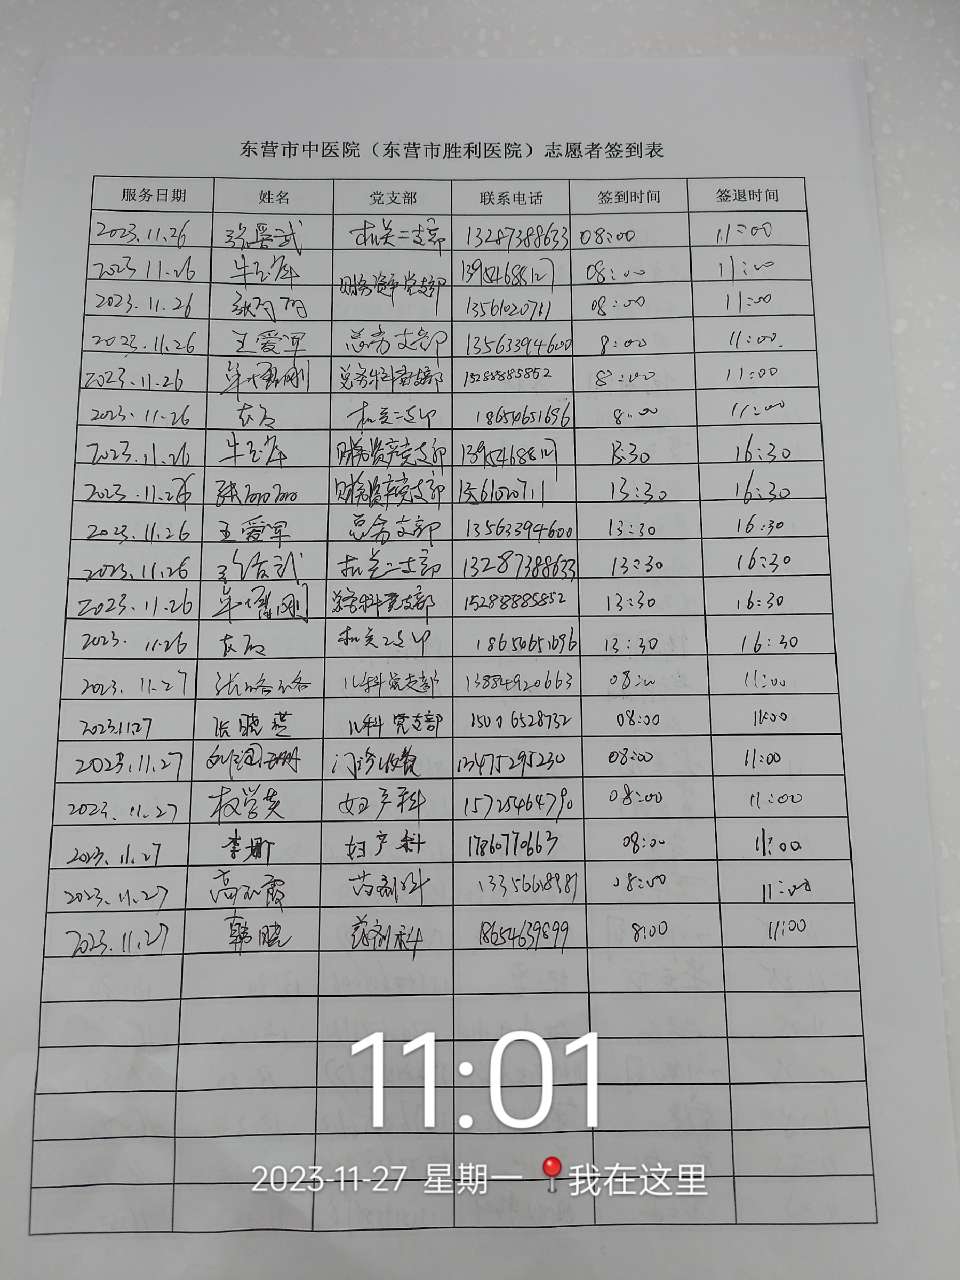 东营市中医院（东营市胜利医院）志愿者签到表
服务日期 姓名 党支部 联系电话 签到时间 签退时间
2023.11.26 机关二支部 13287388633 08:00 11:00
2023 11.26 财务资产党支部 13954688127 08:00 11:00
2023.11.26 08:00 11:00
2023.11.26 王爱军 总务支部 13563394600 8:00 11:00
2023.11.26 15288885852 8:00 11:00
2023.11.26 机关二支部 18654651696 8:00 11:00
2023.11.26 财务资产党支部 13954688127 13:30 16:30
2023.11.26 财务资产党支部 13:30 16:30
2023.11.26 王爱军 总务支部 13563394600 13:30 16:30
2023.11.26 机关二支部 13287388633 13:30 16:30
2023.11.26 15288885852 13:30 16:30
2023. 11.26 机关二支部 18654651696 13:30 16:30
2023. 11.27 张璐璐 儿科党支部 13884920663 08:00 11:00
2023.11.27 儿科党支部 15006528732 08:00 11:00
2023.11.27 门诊收费 13475295230 08:00 11:00
2023. 11.27 权学英 妇产科 15725464790 08:00 11:00
2023.11.27 李娜 妇产科 17860770663 08:00 11:00
2023.11.27 药剂科 08:00 11:00
2023.11.27 韩晓 药剂科 18654639899 8:00 11:00
11:01
2023-11-27 星期一 📍我在这里